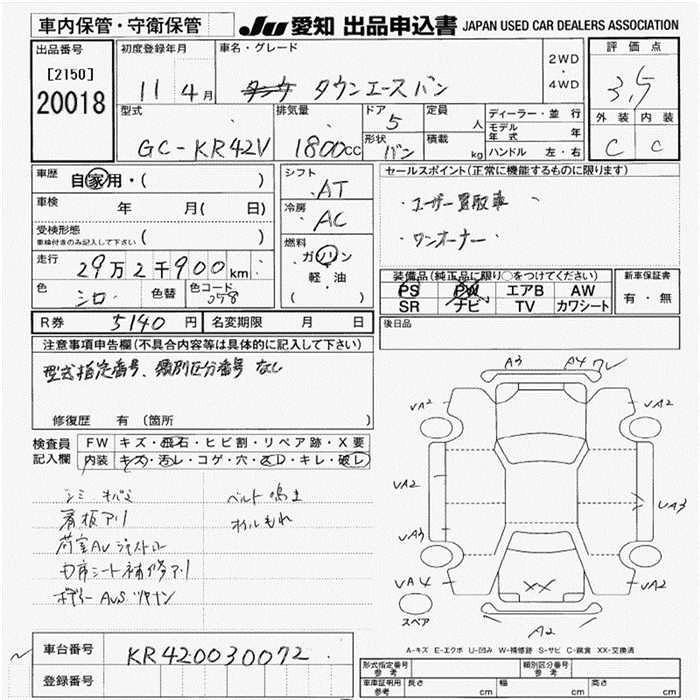 車内保管・守衛保管
JU 愛知 出品申込書 JAPAN USED CAR DEALERS ASSOCIATION
出品番号
[2150]
20018
初度登録年月
11 4月
車名・グレード
タウンエースバン
2WD
・
4WD
評価点
3.5
外装 内装
C C
型式
GC-KR42V
排気量
1800cc
ドア
5
形状
バン
定員
人
積載
kg
ディーラー・並行
モデル年式 年
ハンドル 左・右
車歴
自家用・( )
車検
年 月( 日)
受検形態
車検付きのみ記入して下さい ( )
走行
29万2千900km
色
シロ
色替
色コード
058
シフト
AT
冷房
AC
燃料
ガソリン
軽・油
( )
セールスポイント(正常に機能するものに限ります)
・ユーザー買取車
・ワンオーナー
装備品(純正品に限り○をつけてください)
PS PW エアB AW
SR ナビ TV カワシート
新車保証書
有・無
後日品
R券 5140円
名変期限 月 日
注意事項申告欄(不具合内容等は具体的に記入して下さい)
型式指定番号、類別区分番号 なし
修復歴 有 (箇所 )
検査員
記入欄
FW キズ・飛石・ヒビ割・リペア跡・X要
内装 キズ・汚レ・コゲ・穴・スレ・キレ・破レ
看板アリ
ベルト鳴き
オイルもれ
A3 A4 ワレ
VA2 VA2
VA2 VA3
VA3
VA4 VA2
XX
A2
スペア
A-キズ E-エクボ U-凹み W-補修跡 S-サビ C-腐食 XX-交換済
車台番号
KR420030072
登録番号
形式指定番号
参考
類別区分番号
参考
車庫証明用
参考
長さ cm 幅 cm 高さ cm